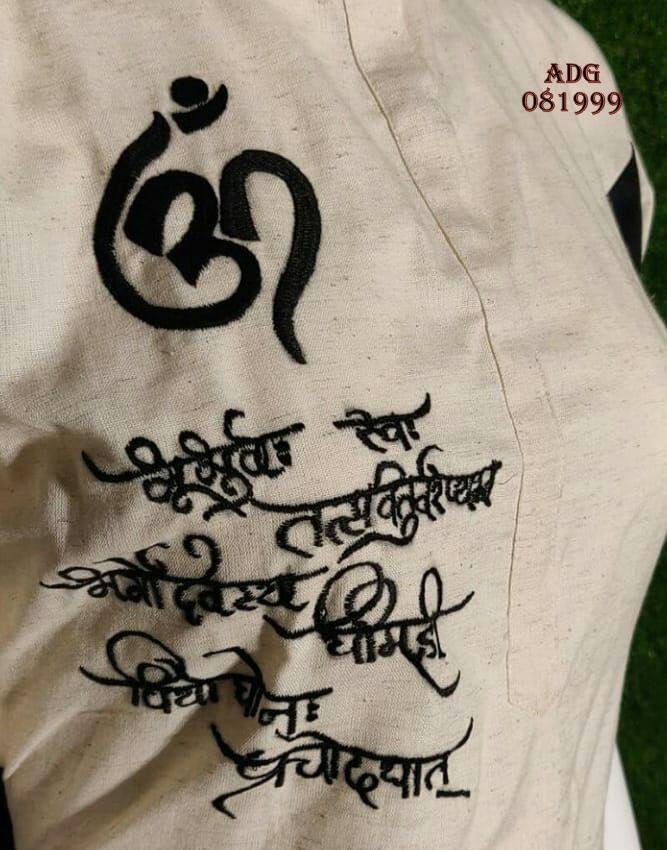 ADG
081999
ॐ
भूर्भुवः स्वः
तत्सवितुर्वरेण्यम
भर्गो देवस्यः
धीमही
धियो योनः
प्रचोदयात्